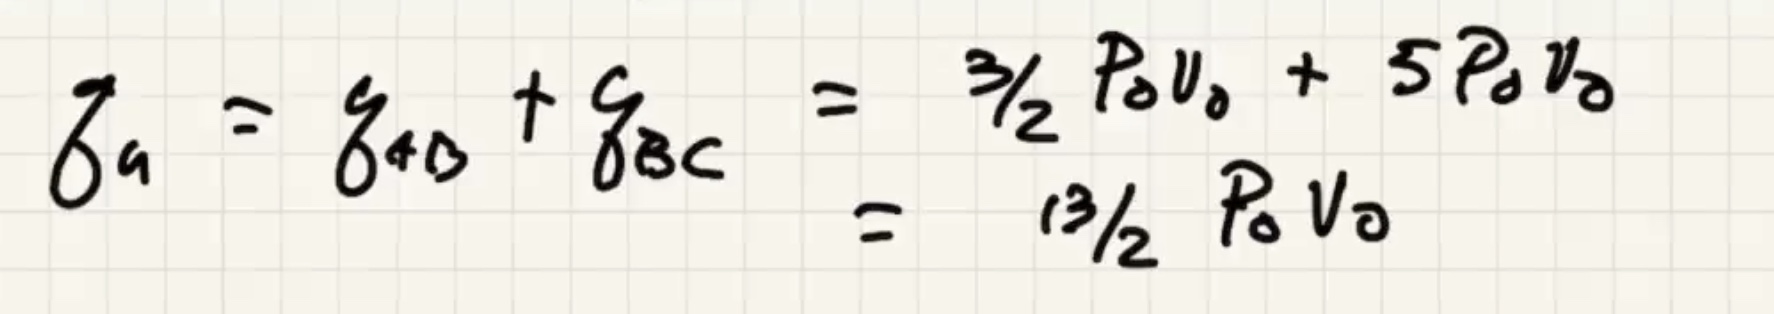 q_a = q_AB + q_BC = 3/2 P₀V₀ + 5P₀V₀
= 13/2 P₀V₀